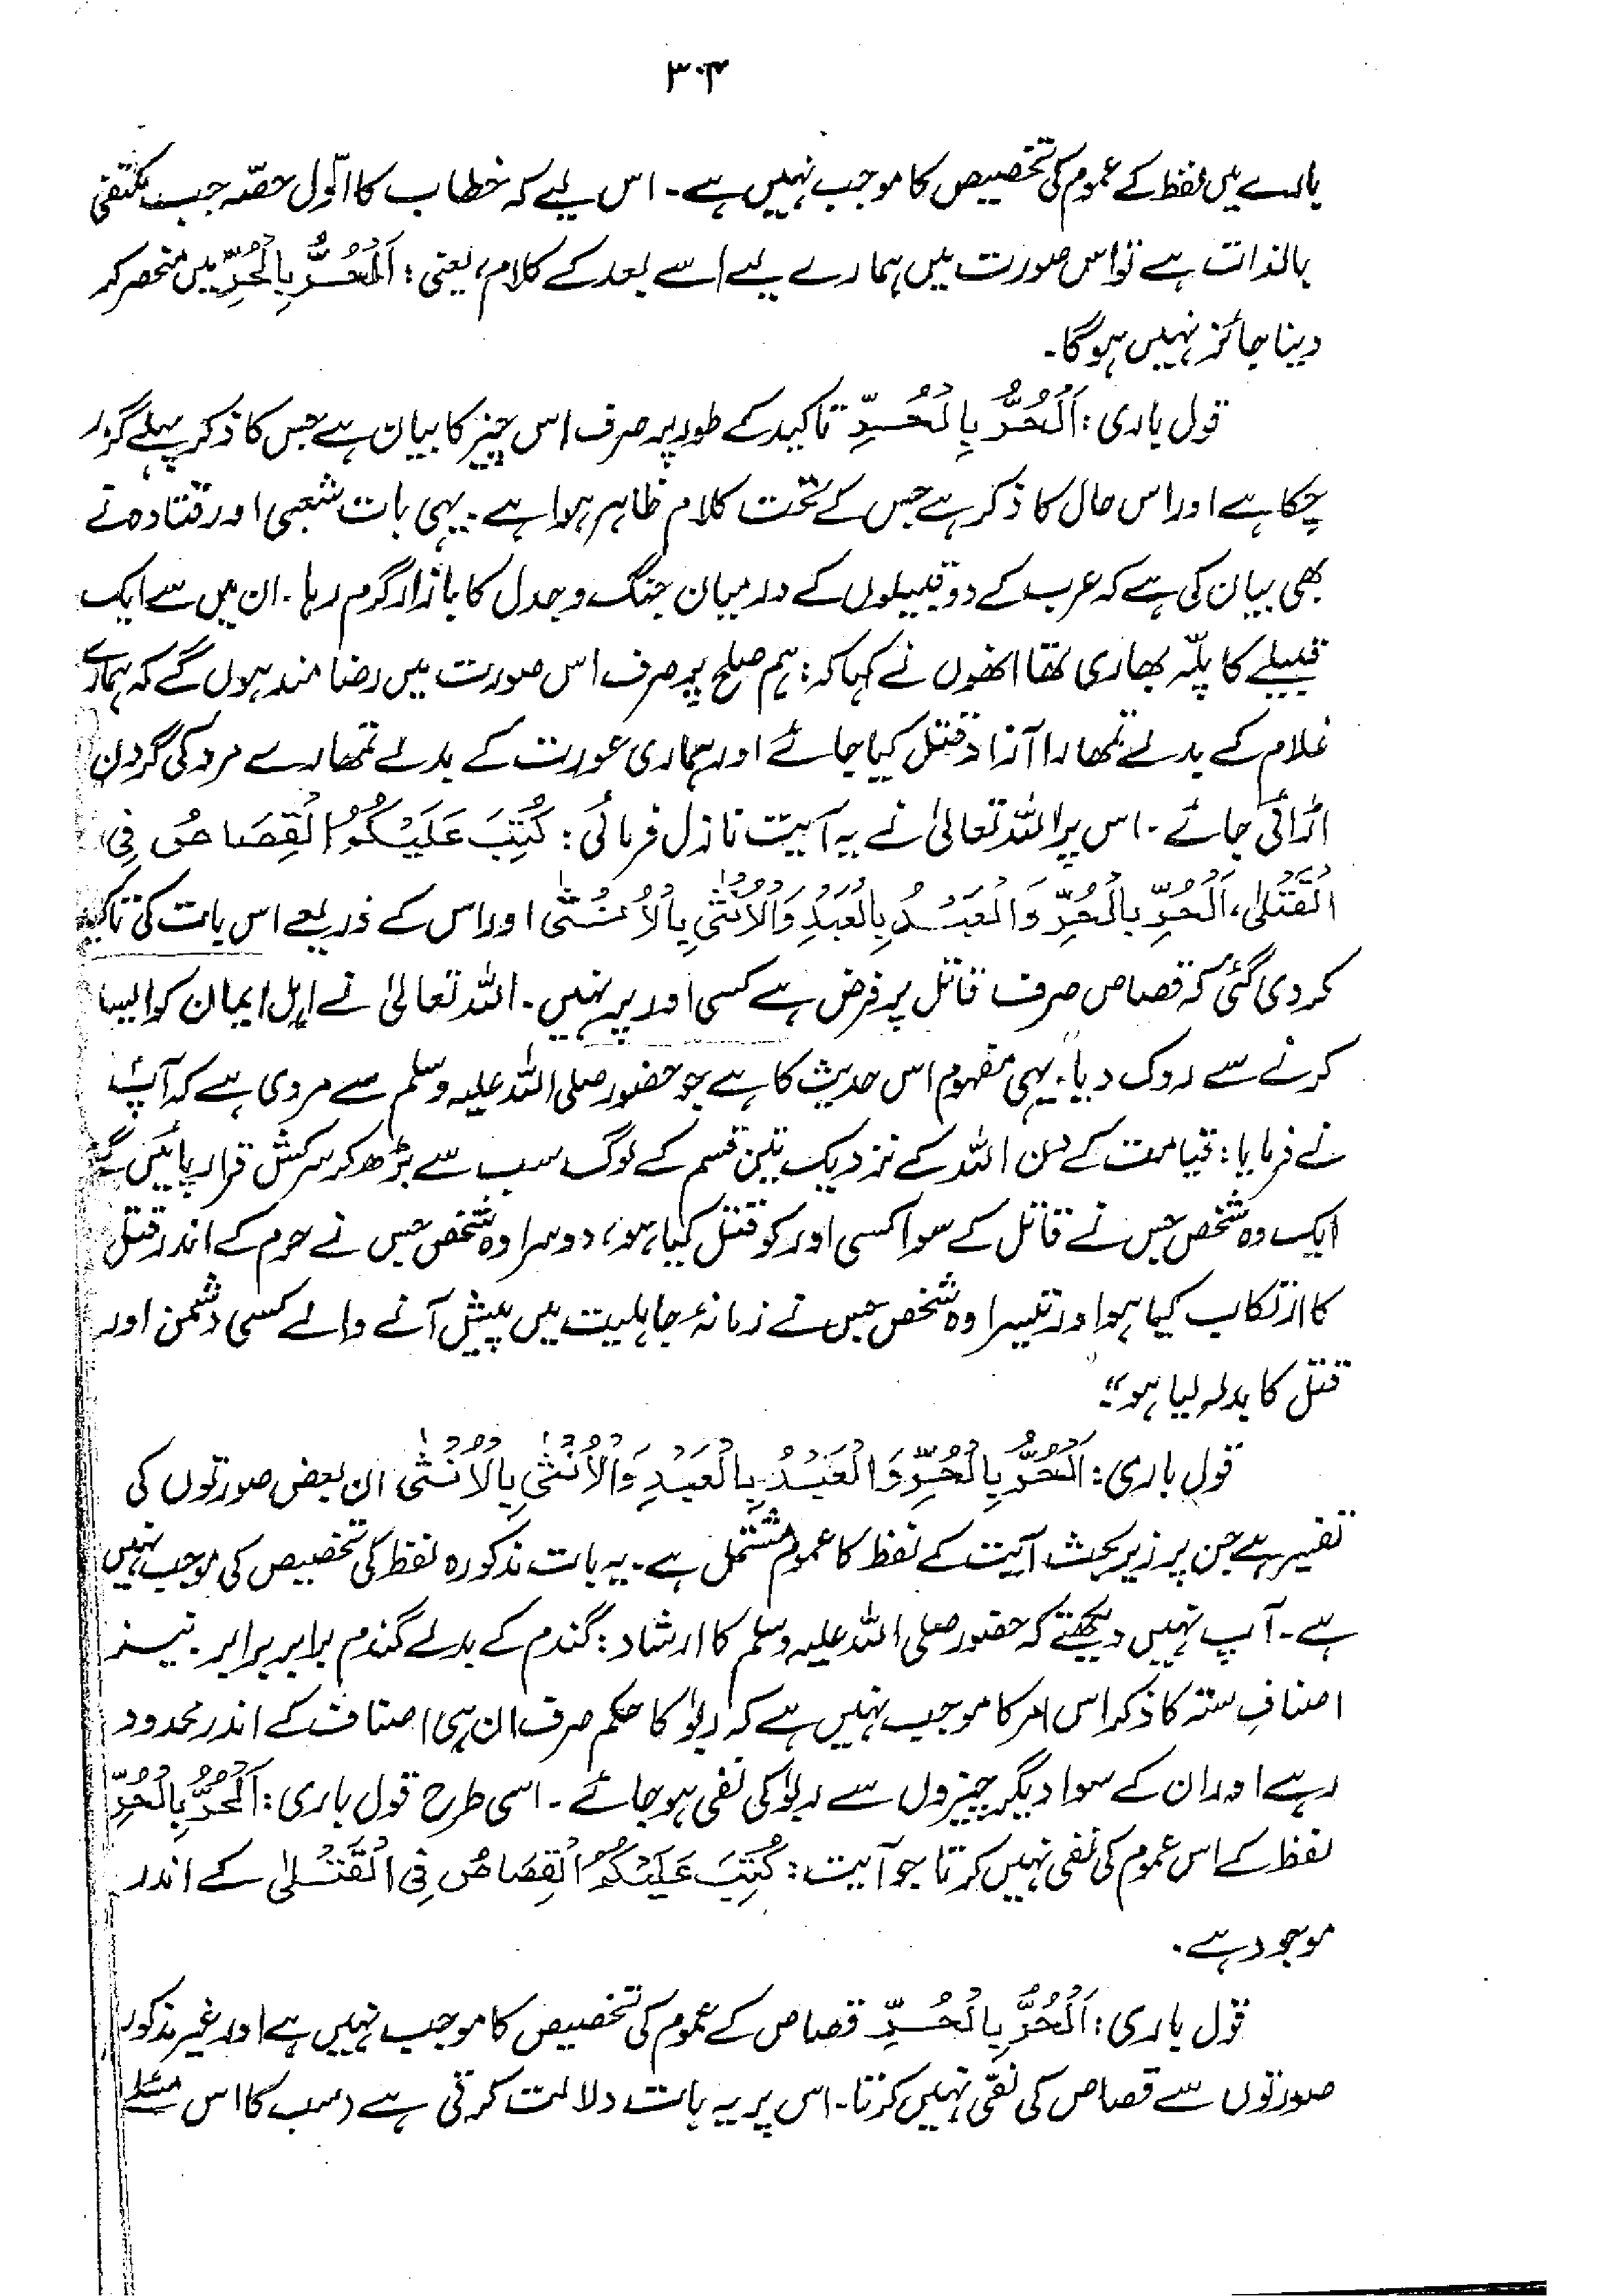 ۳۰۴
بارے میں لفظ کے عموم کی تخصیص کا موجب نہیں ہے۔ اس لیے کہ خطاب کا اوّل حصّہ جب مکتفی
بالذات ہے تو اس صورت میں ہمارے لیے اسے بعد کے کلام، یعنی: اَلْحُرُّ بِالْحُرِّ میں منحصر کر
دینا جائز نہیں ہوگا۔
قول باری: اَلْحُرُّ بِالْحُرِّ تاکید کے طور پر صرف اس چیز کا بیان ہے جس کا ذکر پہلے گزر
چکا ہے اور اس حال کا ذکر ہے جس کے تحت کلام ظاہر ہوا ہے۔ یہی بات شعبی اور قتادہ نے
بھی بیان کی ہے کہ عرب کے دو قبیلوں کے درمیان جنگ و جدل کا بازار گرم رہا۔ ان میں سے ایک
قبیلے کا پلّہ بھاری تھا انھوں نے کہا کہ: ہم صلح پر صرف اس صورت میں رضا مند ہوں گے کہ ہمارے
غلام کے بدلے تمھارا آزاد قتل کیا جائے اور ہماری عورت کے بدلے تمھارے مرد کی گردن
اڑائی جائے۔ اس پر اللہ تعالیٰ نے یہ آیت نازل فرمائی: کُتِبَ عَلَیْکُمُ الْقِصَاصُ فِی
الْقَتْلٰی، اَلْحُرِّ بِالْحُرِّ وَالْعَبْدُ بِالْعَبْدِ وَالْاُنْثٰی بِالْاُنْثٰی اور اس کے ذریعے اس بات کی تاکید
کر دی گئی کہ قصاص صرف قاتل پر فرض ہے کسی اور پر نہیں۔ اللہ تعالیٰ نے اہل ایمان کو ایسا
کرنے سے روک دیا۔ یہی مفہوم اس حدیث کا ہے جو حضور صلی اللہ علیہ وسلم سے مروی ہے کہ آپؐ
نے فرمایا: قیامت کے دن اللہ کے نزدیک تین قسم کے لوگ سب سے بڑھ کر سرکش قرار پائیں گے
ایک وہ شخص جس نے قاتل کے سوا کسی اور کو قتل کیا ہو، دوسرا وہ شخص جس نے حرم کے اندر قتل
کا ارتکاب کیا ہو اور تیسرا وہ شخص جس نے زمانۂ جاہلیت میں پیش آنے والے کسی دشمن اور
قتل کا بدلہ لیا ہو"۔
قول باری: اَلْحُرُّ بِالْحُرِّ وَالْعَبْدُ بِالْعَبْدِ وَالْاُنْثٰی بِالْاُنْثٰی ان بعض صورتوں کی
تفسیر ہے جن پر زیر بحث آیت کے لفظ کا عموم مشتمل ہے۔ یہ بات مذکورہ لفظ کی تخصیص کی موجب نہیں
ہے۔ آپ نہیں دیکھتے کہ حضور صلی اللہ علیہ وسلم کا ارشاد: گندم کے بدلے گندم برابر برابر۔ نیز
اصنافِ ستہ کا ذکر اس امر کا موجب نہیں ہے کہ ربوٰ کا حکم صرف ان ہی اصناف کے اندر محدود
رہے اور ان کے سوا دیگر چیزوں سے ربوٰ کی نفی ہو جائے۔ اسی طرح قول باری: اَلْحُرُّ بِالْحُرِّ
لفظ کے اس عموم کی نفی نہیں کرتا جو آیت: کُتِبَ عَلَیْکُمُ الْقِصَاصُ فِی الْقَتْلٰی کے اندر
موجود ہے۔
قول باری: اَلْحُرُّ بِالْحُرِّ قصاص کے عموم کی تخصیص کا موجب نہیں ہے اور غیر مذکور
صورتوں سے قصاص کی نفی نہیں کرتا۔ اس پر یہ بات دلالت کرتی ہے (سب کا اس مسئلے